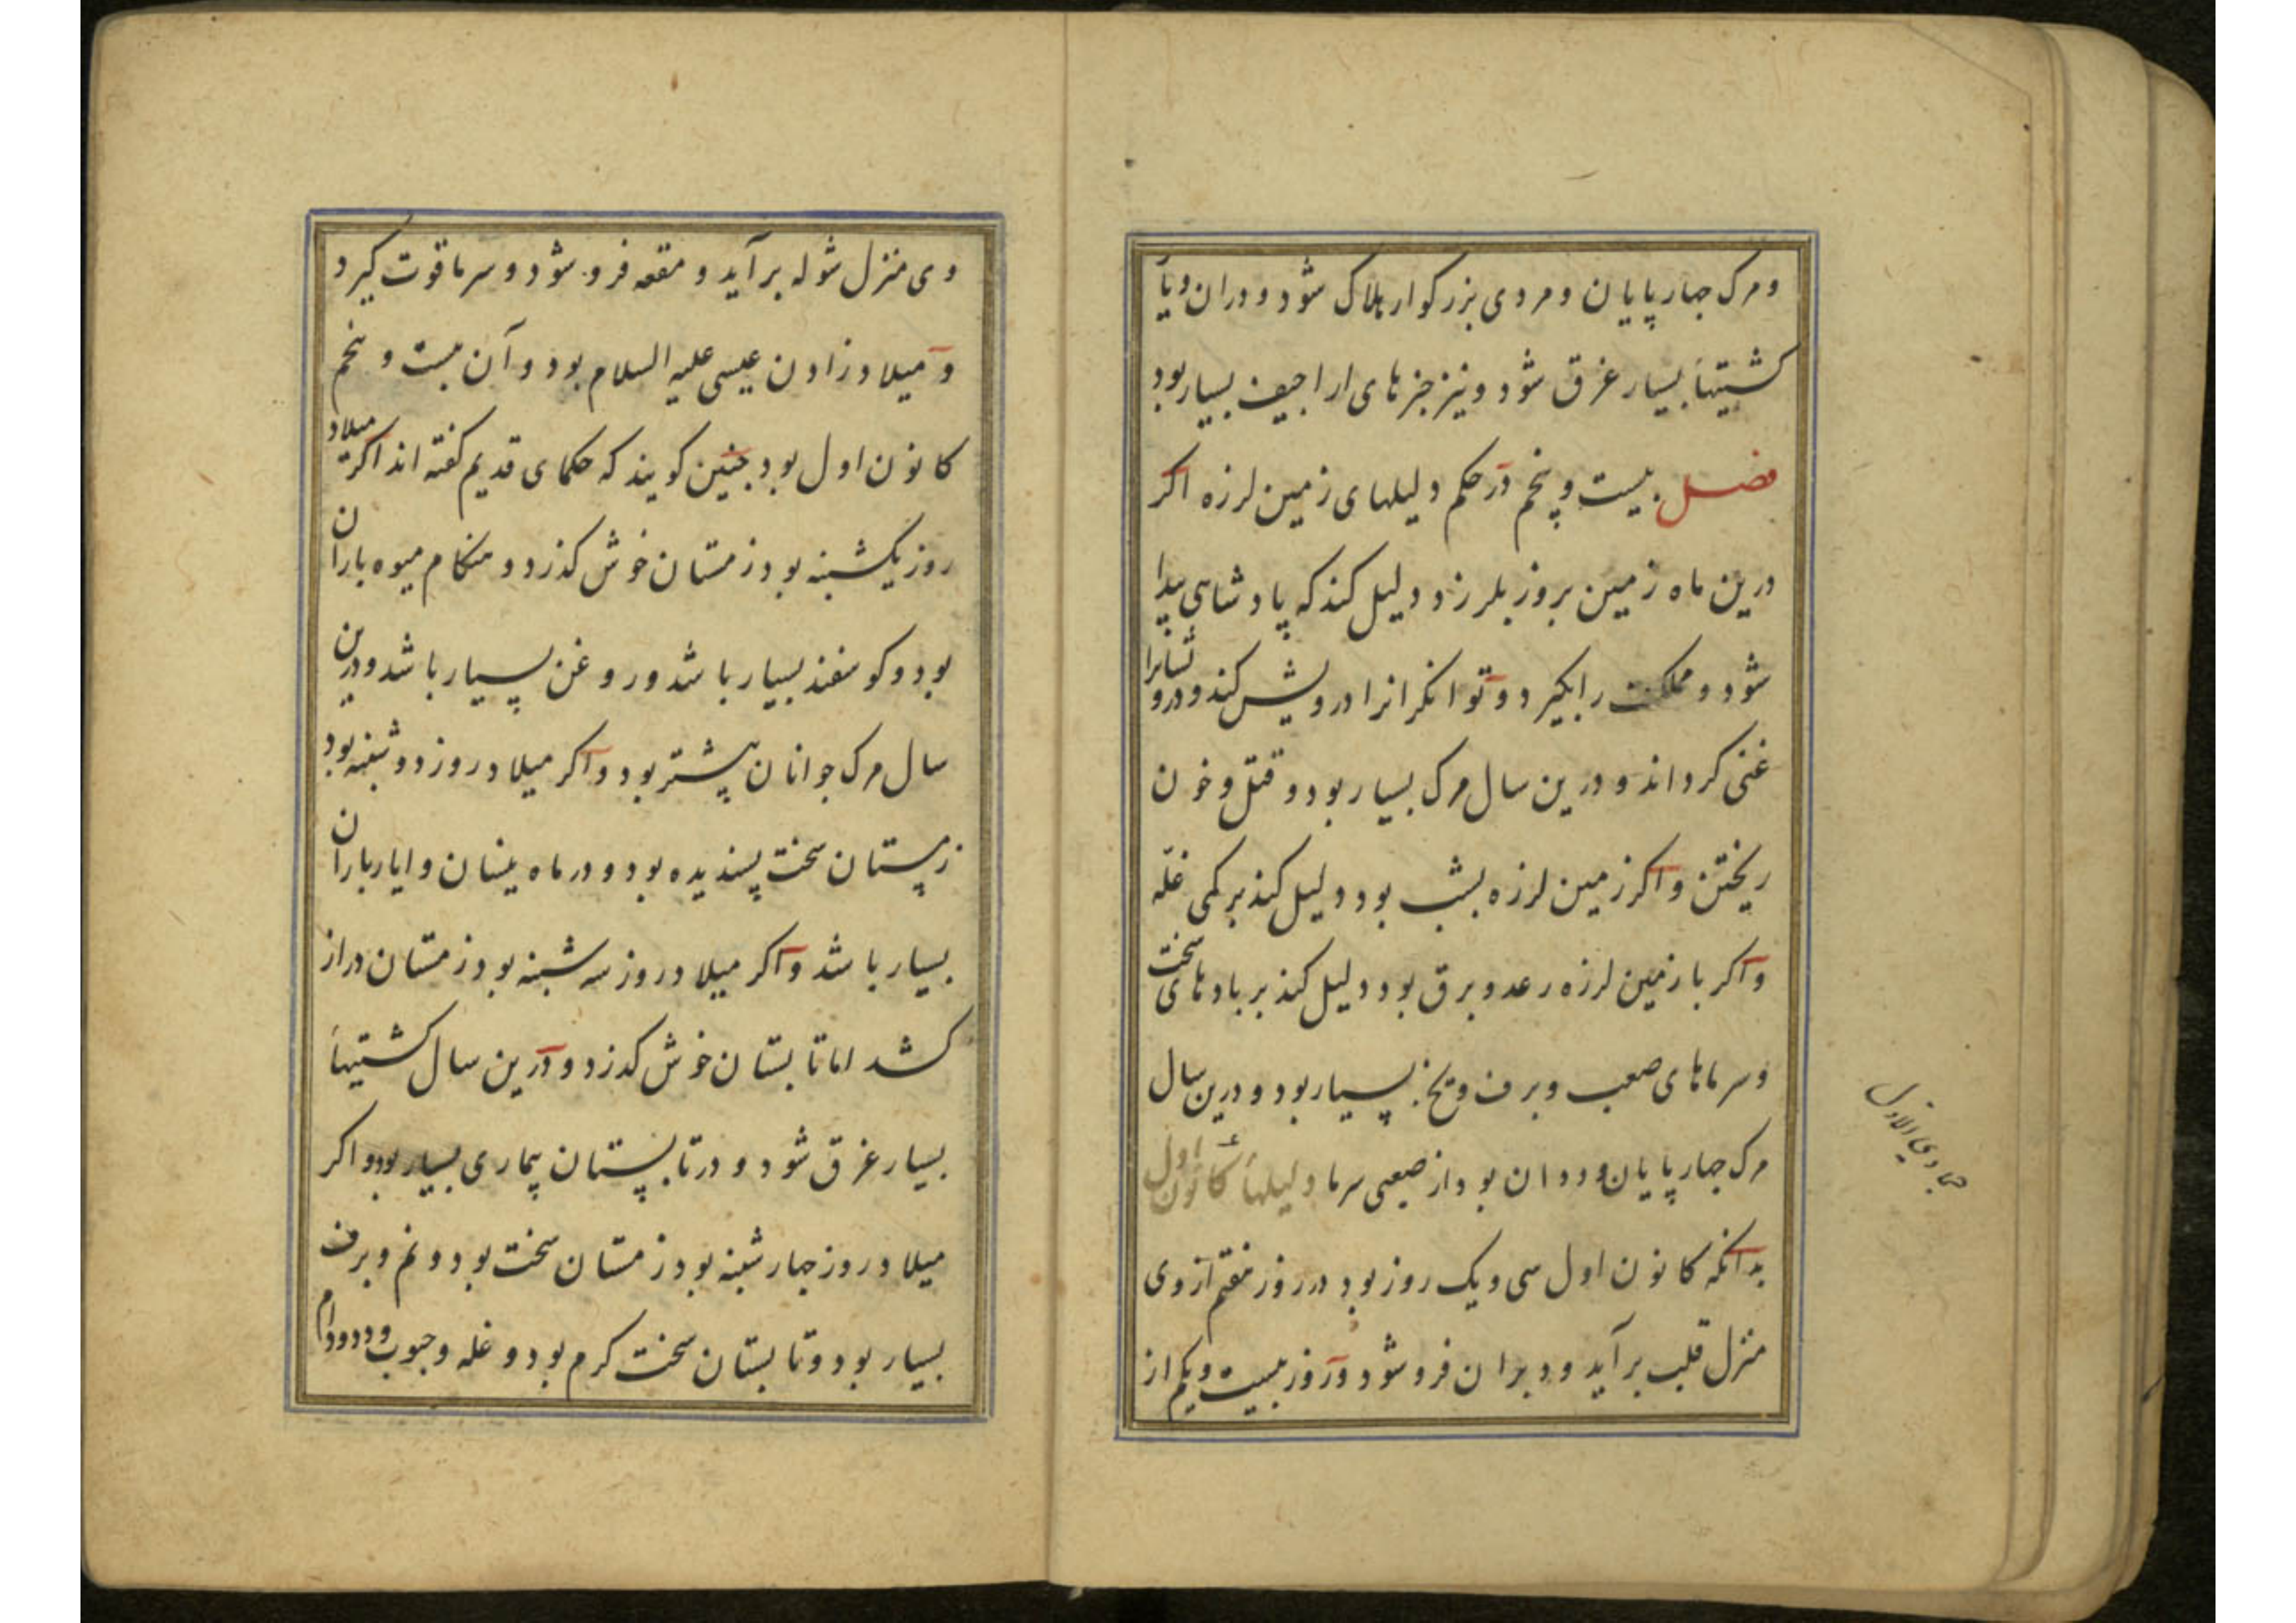 و مرک جهار پایان و مردی بزرکوار هلاک شود و دران دریا
کشتیها بسیار غرق شود و نیز خبرهای اراجیف بسیار بود
فصل بیست و پنجم در حکم دلیلهای زمین لرزه اکر
درین ماه زمین بروز بلرزد دلیل کند که پادشاهی پیدا
شود و مملکت را بکیرد و توانکرانرا درویش کند و درویشانرا
غنی کرداند و درین سال مرک بسیار بود و قتل و خون
ریختن و اکر زمین لرزه بشب بود دلیل کند بر کمی غله
و اکر با زمین لرزه رعد و برق بود دلیل کند بر بادهای سخت
و سرماهای صعب و برف و یخ بسیار بود و درین سال
مرک جهار پایان و ددان بود از صعبی سرما دلیلهاء کانون اول
بدانکه کانون اول سی و یک روز بود در روز هفتم از وی
منزل قلب برآید و دبران فرو شود و در روز بیست و یکم از
جمادی الاول
وی منزل شوله برآید و هقعه فرو شود و سرما قوت کیرد
و میلاد زادن عیسی علیه السلام بود و آن بیست و پنجم
کانون اول بود جنین کویند که حکمای قدیم کفته اند اکر میلاد
روز یکشنبه بود زمستان خوش کذرد و هنکام میوه باران
بود و کوسفند بسیار باشد و روغن بسیار باشد و درین
سال مرک جوانان بیشتر بود و اکر میلاد روز دوشنبه بود
زمستان سخت پسندیده بود و در ماه نیسان و ایار باران
بسیار باشد و اکر میلاد روز سه شنبه بود زمستان دراز
کشد اما تابستان خوش کذرد و درین سال کشتیها
بسیار غرق شود و در تابستان بیماری بسیار بود و اکر
میلاد روز جهار شنبه بود زمستان سخت بود و نم و برف
بسیار بود و تابستان سخت کرم بود و غله و حبوب و دد و دام